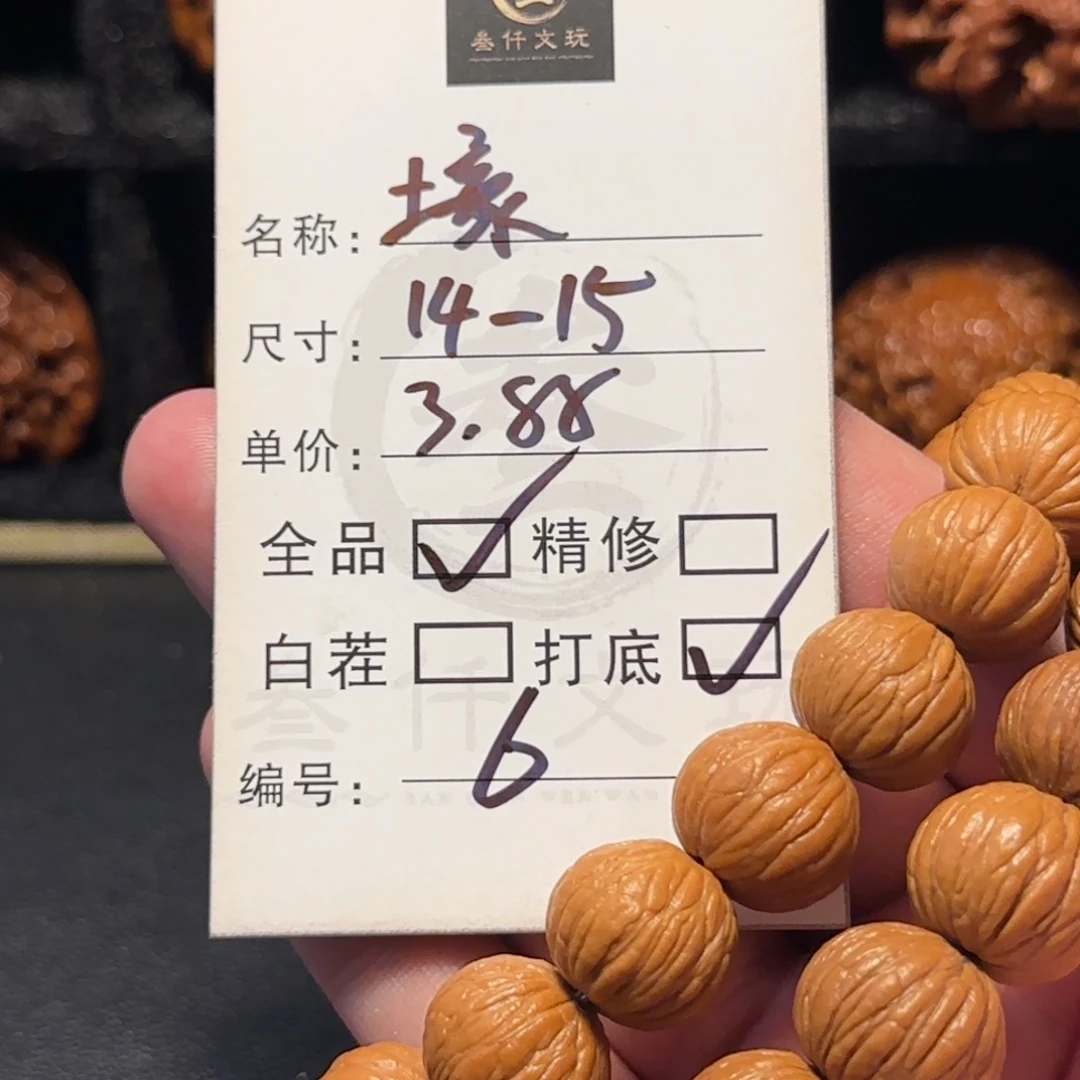 叁仟文玩
名称：壕
尺寸：14-15
单价：3.88
全品 ✓ 精修
白茬 打底 ✓
编号：6
叁仟文玩